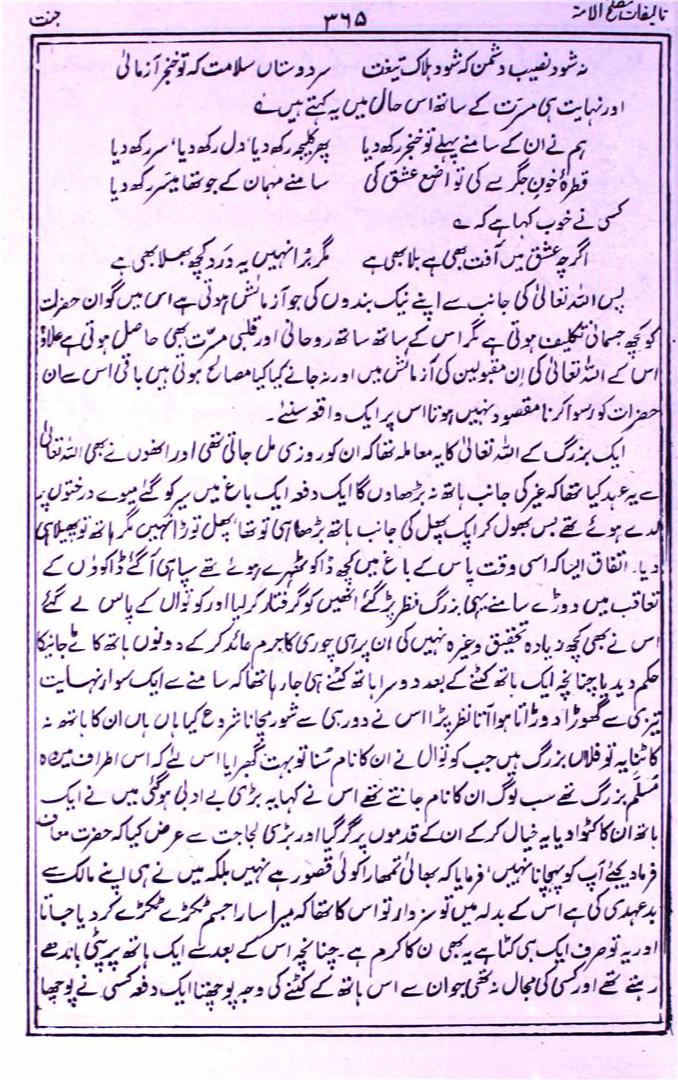 تالیفات مصلح الامۃ ۳۶۵ جنت
نہ شود نصیب دشمن کہ شود ہلاک تیغت سر دوستاں سلامت کہ تو خنجر آزمائی
اور نہایت ہی مسرت کے ساتھ اس حال میں یہ کہتے ہیں ؎
ہم نے ان کے سامنے پہلے تو خنجر رکھ دیا پھر کلیجہ رکھ دیا، دل رکھ دیا، سر رکھ دیا
قطرۂ خونِ جگر سے کی تواضع عشق کی سامنے مہمان کے جو تھا میسر رکھ دیا
کسی نے خوب کہا ہے کہ ؎
اگرچہ عشق میں آفت بھی ہے بلا بھی ہے مگر بُرا نہیں یہ درد کچھ بھلا بھی ہے
پس اللہ تعالیٰ کی جانب سے اپنے نیک بندوں کی جو آزمائش ہوتی ہے اس میں گو ان حضرات
کو کچھ جسمانی تکلیف ہوتی ہے مگر اس کے ساتھ ساتھ روحانی اور قلبی مسرّت بھی حاصل ہوتی ہے علاوہ
اس کے اللہ تعالیٰ کی اِن مقبولین کی آزمائش میں اور نہ جانے کیا کیا مصالح ہوتی ہیں باقی اس سے ان
حضرات کو رسوا کرنا مقصود نہیں ہوتا اس پر ایک واقعہ سنئے ۔
ایک بزرگ کے اللہ تعالیٰ کا یہ معاملہ تھا کہ ان کو روزی مل جاتی تھی اور انھوں نے بھی اللہ تعالیٰ
سے یہ عہد کیا تھا کہ غیر کی جانب ہاتھ نہ بڑھاوں گا ایک دفعہ ایک باغ میں سیر کو گئے میوے درختوں پر
لدے ہوئے تھے بس بھول کر ایک پھل کی جانب ہاتھ بڑھا ہی تو تھا، پھل توڑا نہیں مگر ہاتھ تو پھیلا ہی
دیا۔ اتفاق ایسا کہ اسی وقت پاس کے باغ میں کچھ ڈاکو ٹھہرے ہوئے تھے سپاہی آگئے ڈاکوؤں کے
تعاقب میں دوڑے سامنے یہی بزرگ نظر پڑ گئے انھیں کو گرفتار کر لیا اور کوتوال کے پاس لے گئے
اس نے بھی کچھ زیادہ تحقیق وغیرہ نہیں کی ان پر ہی چوری کا جرم عائد کر کے دونوں ہاتھ کاٹے جانیکا
حکم دیدیا چنانچہ ایک ہاتھ کٹنے کے بعد دوسرا ہاتھ کٹنے ہی جا رہا تھا کہ سامنے سے ایک سوار نہایت
تیزی سے گھوڑا دوڑاتا ہوا آتا نظر پڑا اس نے دور ہی سے شور مچانا شروع کیا ہاں ہاں ان کا ہاتھ نہ
کاٹنا یہ تو فلاں بزرگ ہیں جب کوتوال نے ان کا نام سُنا تو بہت گھبرایا اس لئے کہ اس اطراف میں وہ
مُسلَّم بزرگ تھے سب لوگ ان کا نام جانتے تھے اس نے کہا یہ بڑی بے ادبی ہو گئی میں نے ایک
ہاتھ ان کا کٹوا دیا یہ خیال کر کے ان کے قدموں پر گر گیا اور بڑی لجاجت سے عرض کیا کہ حضرت معاف
فرما دیجئے آپ کو پہچانا نہیں، فرمایا کہ بھائی تمھارا کوئی قصور ہے نہیں بلکہ میں نے ہی اپنے مالک سے
بدعہدی کی ہے اس کے بدلہ میں تو سزوار تو اس کا تھا کہ میرا سارا جسم ٹکڑے ٹکڑے کر دیا جاتا
اور یہ تو صرف ایک ہی کٹا ہے یہ بھی ن کا کرم ہے ۔ چنانچہ اس کے بعد سے ایک ہاتھ پر پٹی باندھے
رہتے تھے اور کسی کی مجال نہ تھی جو ان سے اس ہاتھ کے کٹنے کی وجہ پوچھتا ایک دفعہ کسی نے پوچھا